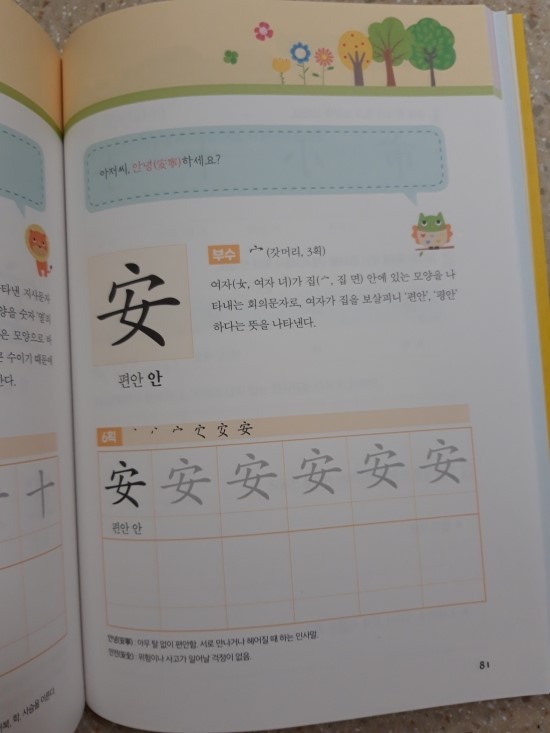 타낸 지사문자
양을 숫자 '열'의
은 모양으로 하
큰 수이기 때문에
한다.
아저씨, 안녕(安寧)하세요?
부수 宀 (갓머리, 3획)
여자(女, 여자 녀)가 집(宀, 집 면) 안에 있는 모양을 나
타내는 회의문자로, 여자가 집을 보살피니 '편안', '평안'
하다는 뜻을 나타낸다.
安
편안 안
6획
安 安 安 安 安 安
편안 안
안녕(安寧) : 아무 탈 없이 편안함. 서로 만나거나 헤어질 때 하는 인사말.
안전(安全) : 위험이나 사고가 일어날 걱정이 없음.
81